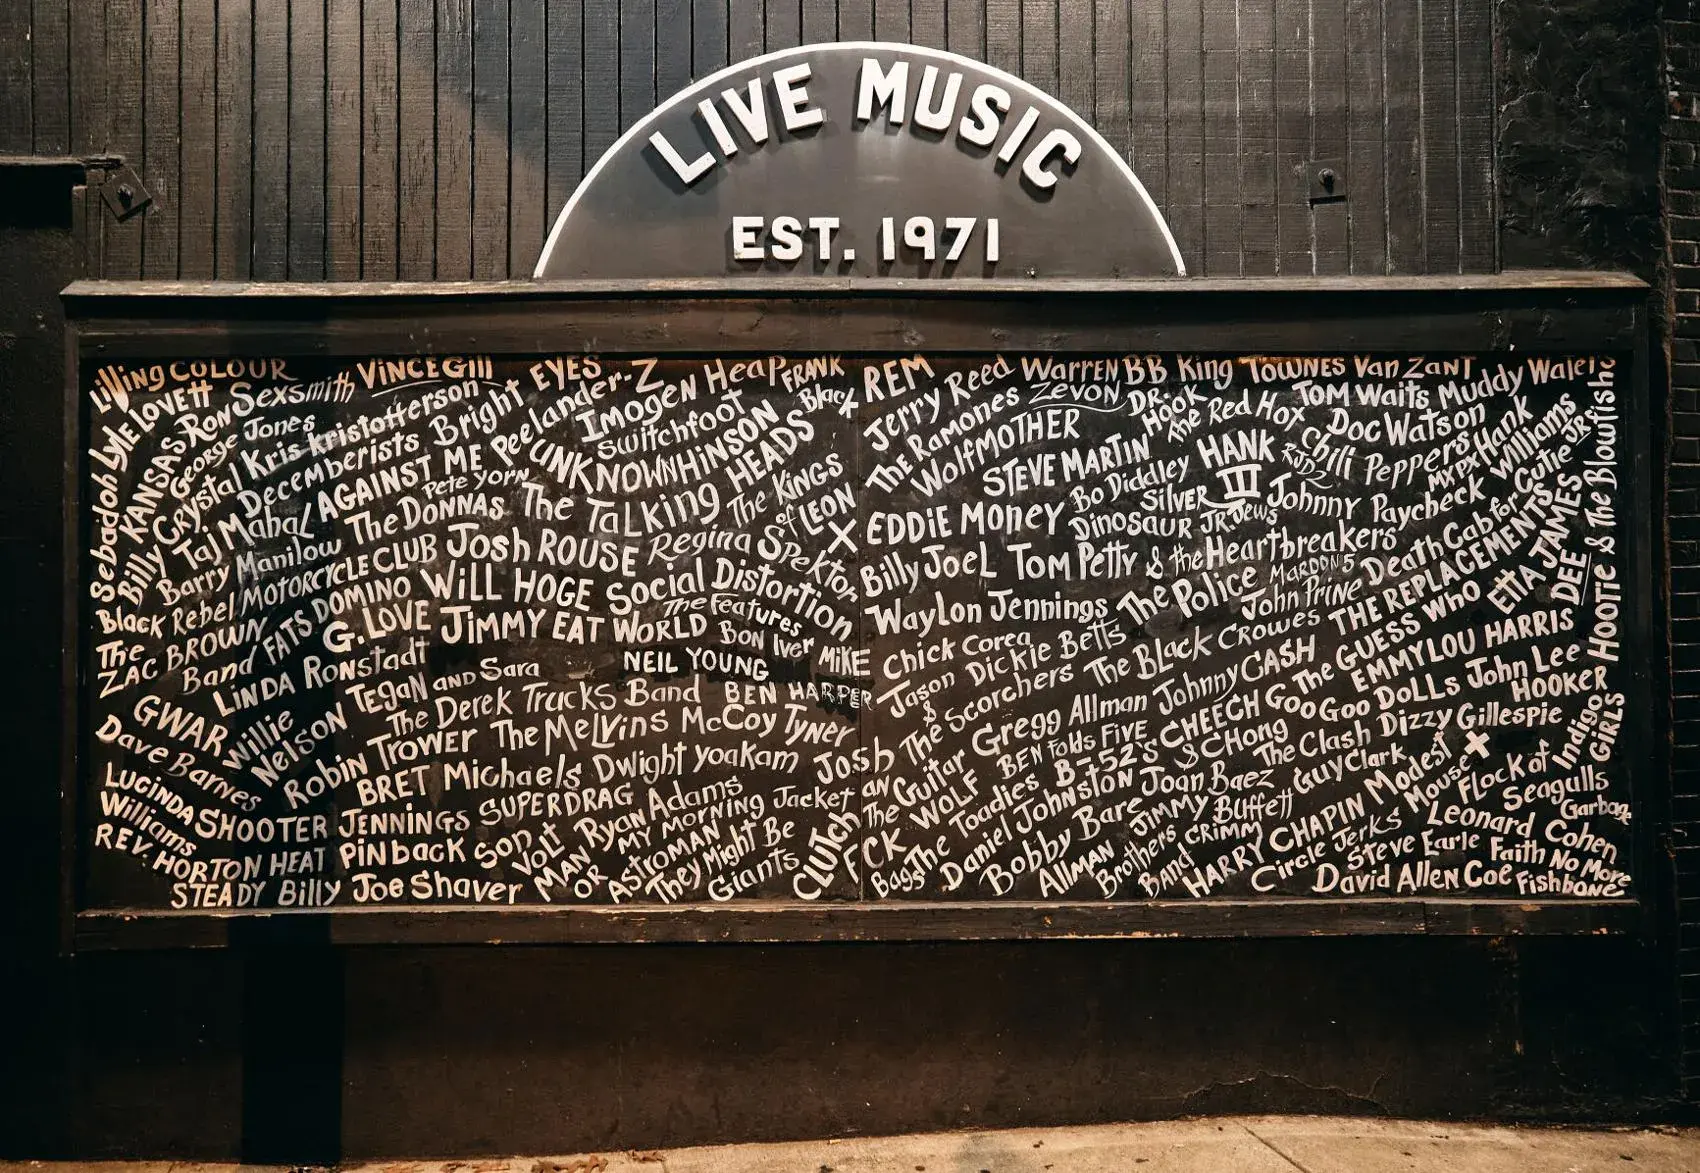 LIVE MUSIC
EST. 1971
Living COLOUR
Lyle LOVETT
Sebadoh
KANSAS
Ron Sexsmith
VINCE Gill
George Jones
Billy Crystal
Kris kristofferson
Decemberists
Bright EYES
Peelander-Z
Imogen Heap
FRANK Black
Switchfoot
UNKNOWNHINSON
Taj Mahal
AGAINST ME
Pete Yorn
The DONNAS
The TaLking HEADS
The KINGS of LEON
X
Barry Manilow
Black Rebel MOTORCYCLE CLUB
Josh ROUSE
Regina Spektor
The ZAC BROWN Band
FATS DOMINO
WiLL HOGE
Social Distortion
The Features
G. LOVE
JiMMY EAT WORLD
BON Iver
MiKE
LiNDA RonStadt
TEGaN and Sara
NEIL YOUNG
BEN HARPER
GWAR
Willie Nelson
The Derek Trucks Band
Dave Barnes
Robin TROWER
The MeLvins
McCoy Tyner
LUCINDA Williams
BRET Michaels
Dwight yoaKam
Josh
SHOOTER JENNINGS
SUPERDRAG
Ryan Adams
MY MORNING Jacket
REV. HORTON HEAT
PiNback
Son Volt
MAN OR AstROMAN
They Might Be Giants
CLUTCH
STEADY Billy
Joe Shaver
REM
Jerry Reed
Warren Zevon
BB King
TOWNES Van ZANT
The Ramones
DR. Hook
The Red Hot Chili Peppers
TOM WaitS
Muddy Waters
WolfMOTHER
Doc Watson
STEVE MARTIN
HANK III
RJD2
MXPX
Hank Williams JR.
Bo Diddley
SiLVER Jews
Johnny Paycheck
Death Cab for Cutie
EDDIE MONEY
Dinosaur JR.
Billy JoeL
Tom Petty & the Heartbreakers
MAROON 5
ETTA JAMES
Waylon Jennings
The Police
John PRiNE
THE REPLACEMENTS
DEE
HOOTIE & The Blowfish
Chick Corea
Dickie Betts
The BLACK CROWES
The GUESS Who
Jason & The Scorchers
Johnny CASH
EMMYLOU HARRIS
Gregg Allman
CHEECH & CHong
Goo Goo DoLLs
John Lee HOOKER
Indigo GIRLS
The Guitar
BEN Folds FIVE
B-52'S
The Clash
Dizzy Gillespie
an WOLF
The Toadies
Joan Baez
Guy Clark
Modest Mouse
X
Flock of Seagulls
F CK Bags
The Daniel Johnston
Bobby Bare
JiMMY Buffett
Garbage
ALLMAN Brothers Band
CRIMM
HARRY CHAPIN
Circle Jerks
Leonard Cohen
Steve Earle
Faith No More
David Allen Coe
Fishbone